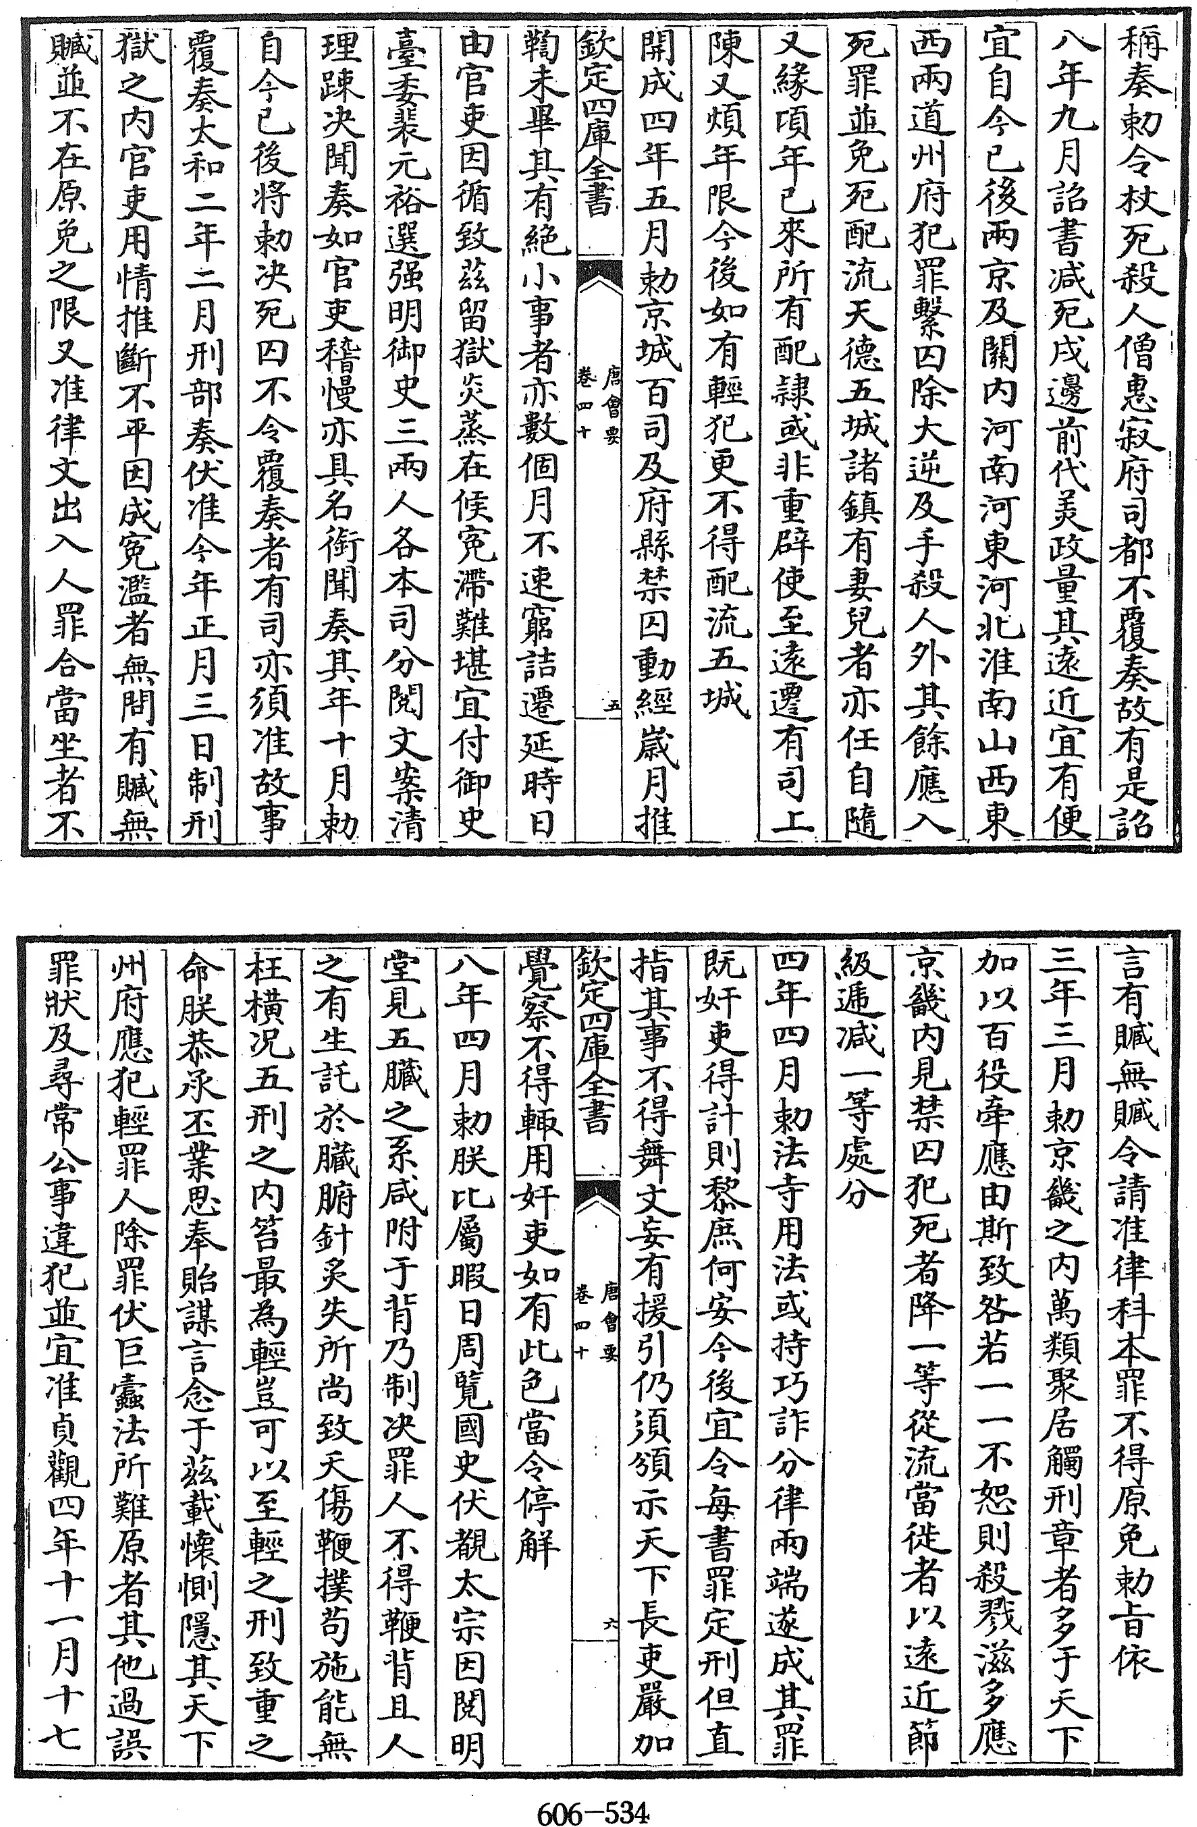 稱奏勅令杖死殺人僧惠寂府司都不覆奏故有是詔
八年九月詔書減死戍邊前代美政量其逺近宜有便
宜自今已後兩京及關内河南河東河北淮南山西東
西兩道州府犯罪繫囚除大逆及手殺人外其餘應入
死罪並免死配流天德五城諸鎮有妻兒者亦任自隨
又緣頃年已來所有配隷或非重辟使至逺遷有司上
陳又煩年限今後如有輕犯更不得配流五城
開成四年五月勅京城百司及府縣禁囚動經嵗月推
欽定四庫全書
唐會要
卷四十
五
鞫未畢其有絶小事者亦數個月不速窮詰遷延時日
由官吏因循致兹留獄炎蒸在候寃滯難堪宜付御史
臺委裴元裕選强明御史三兩人各本司分閲文案清
理踈决聞奏如官吏稽慢亦具名銜聞奏其年十月勅
自今已後將勅决死囚不令覆奏者有司亦須准故事
覆奏太和二年二月刑部奏伏准今年正月三日制刑
獄之内官吏用情推斷不平因成寃濫者無問有贓無
贓並不在原免之限又准律文出入人罪合當坐者不
言有贓無贓令請准律科本罪不得原免勅旨依
三年三月勅京畿之内萬類聚居觸刑章者多于天下
加以百役牽應由斯致咎若一一不恕則殺戮滋多應
京畿内見禁囚犯死者降一等從流當徙者以逺近節
級遞减一等處分
四年四月勅法寺用法或持巧詐分律兩端遂成其罪
既奸吏得計則黎庶何安今後宜令每書罪定刑但直
指其事不得舞文妄有援引仍須頒示天下長吏嚴加
欽定四庫全書
唐會要
卷四十
六
覺察不得輙用奸吏如有此色當令停解
八年四月勅朕比屬暇日周覽國史伏覩太宗因閲明
堂見五臟之系咸附于背乃制决罪人不得鞭背且人
之有生託於臟腑針炙失所尚致夭傷鞭撲苟施能無
枉横况五刑之内笞最為輕豈可以至輕之刑致重之
命朕恭承丕業思奉貽謀言念于兹載懐惻隠其天下
州府應犯輕罪人除罪伏巨蠧法所難原者其他過誤
罪狀及尋常公事違犯並宜准貞觀四年十一月十七
606-534